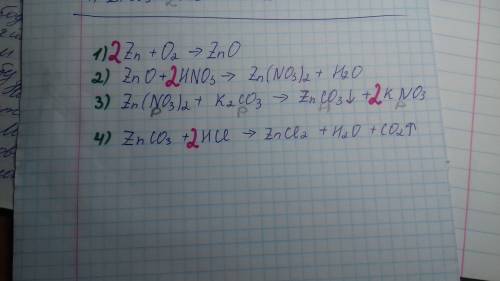 1) 2Zn + O2 → ZnO
2) ZnO + 2HNO3 → Zn(NO3)2 + H2O
3) Zn(NO3)2 + K2CO3 → ZnCO3↓ + 2KNO3
р р н р
4) ZnCO3 + 2HCl → ZnCl2 + H2O + CO2↑